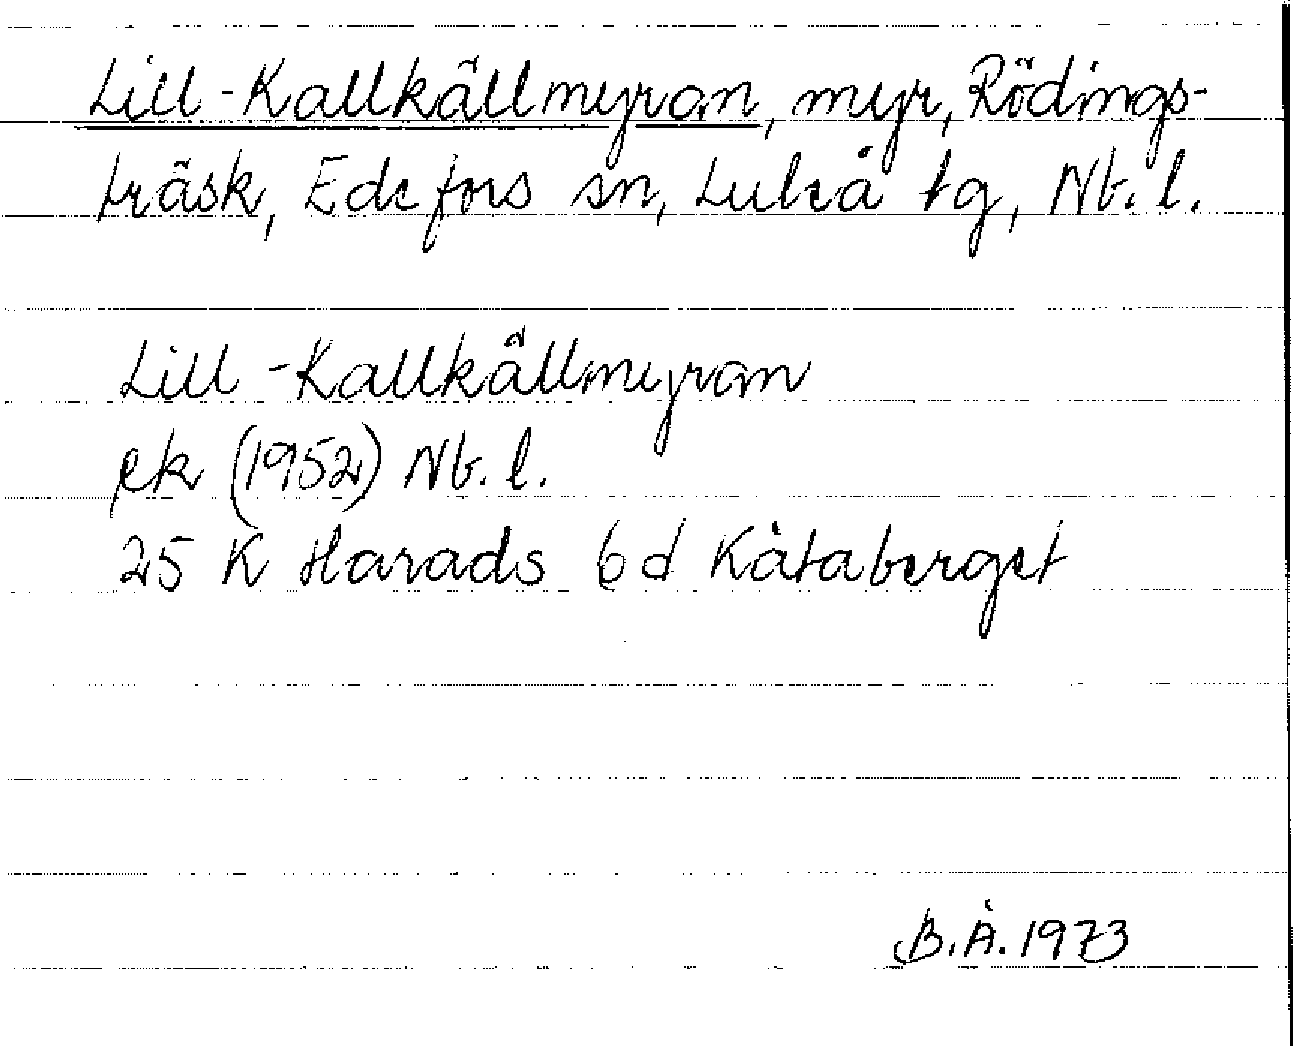 Lill-Kallkällmyran, myr, Rödings-
träsk, Edefors sn, Luleå tg, Nb. l.
Lill-Kallkällmyran
ek (1952) Nb. l.
25 K Harads 6d Kåtaberget
B.Å. 1973